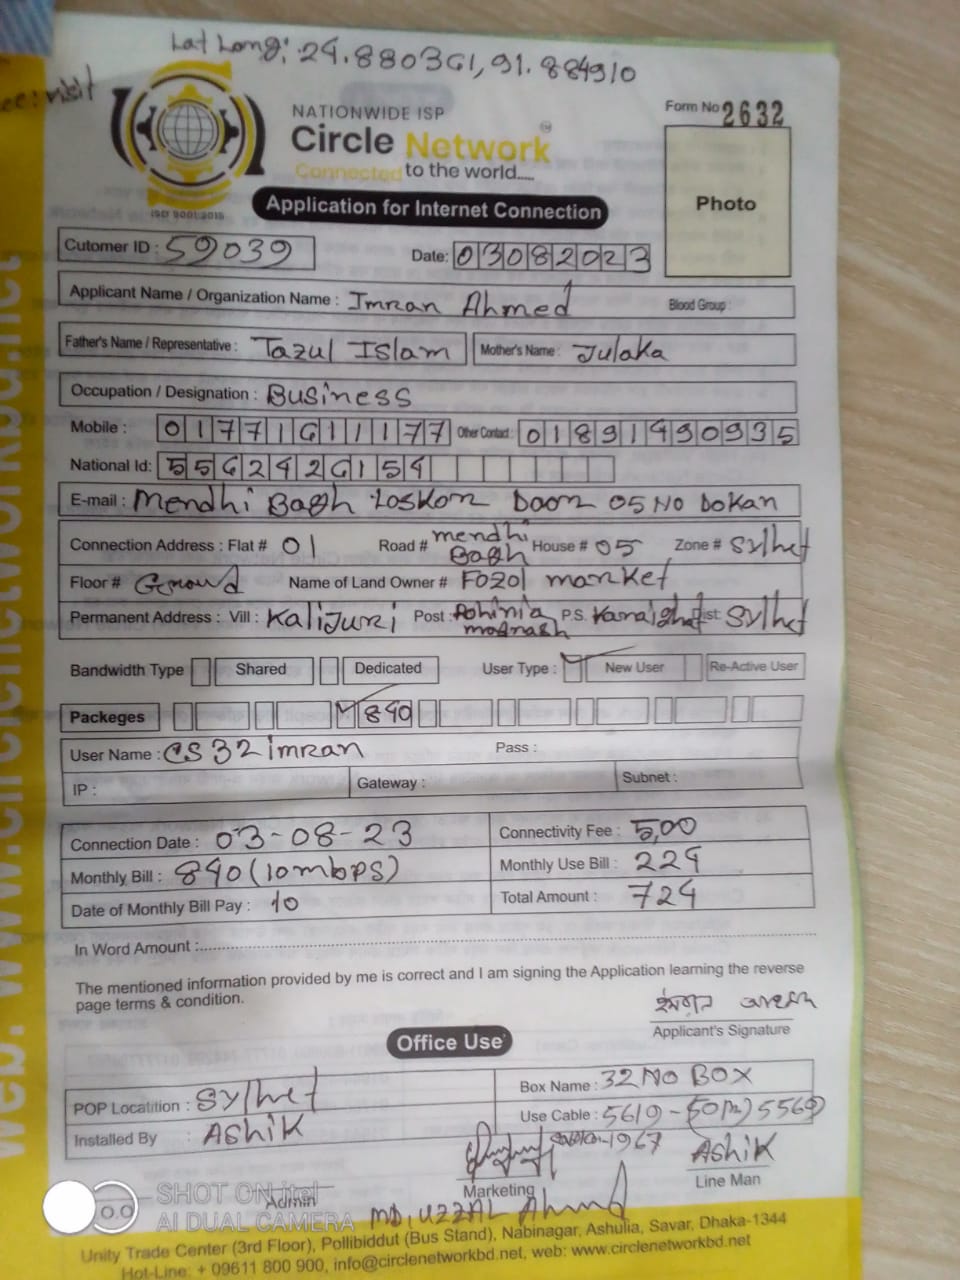 Lat Long: 24.880361, 91.884910
NATIONWIDE ISP
Circle Network
Connected to the world.....
ISO 9001:2015
Form No 2632
Photo
Application for Internet Connection
Cutomer ID : 59039 Date: 03082023
Applicant Name / Organization Name : Imran Ahmed Blood Group :
Father's Name / Representative : Tazul Islam Mother's Name : Julaka
Occupation / Designation : Business
Mobile : 01771611177 Other Contact : 01891490935
National Id: 5562426154
E-mail : Mendhi Bagh Loskor Door 05 No Dokan
Connection Address : Flat # 01 Road # mendhi Bagh House # 05 Zone # Sylhet
Floor # Ground Name of Land Owner # Fozol market
Permanent Address : Vill : Kalijuri Post : P.S. Kanaighat Dist: Sylhet
Bandwidth Type Shared Dedicated User Type : New User Re-Active User
Packeges 840
User Name : CS32imran Pass :
IP : Gateway : Subnet :
Connection Date : 03-08-23 Connectivity Fee : 5,00
Monthly Bill : 840 (10mbps) Monthly Use Bill : 224
Date of Monthly Bill Pay : 10 Total Amount : 724
In Word Amount :
The mentioned information provided by me is correct and I am signing the Application learning the reverse
page terms & condition.
ইমরান আহমদ
Applicant's Signature
Office Use
POP Locatition : Sylhet Box Name : 32 NO BOX
Installed By : Ashik Use Cable : 5619 - (50m) 5569
1967 Ashik
Admin Marketing Line Man
MD, UZZAL Ahmed
SHOT ON itel
AI DUAL CAMERA
Unity Trade Center (3rd Floor), Pollibiddut (Bus Stand), Nabinagar, Ashulia, Savar, Dhaka-1344
Hot-Line: + 09611 800 900, info@circlenetworkbd.net, web: www.circlenetworkbd.net
web: www.circlenetworkbd.net